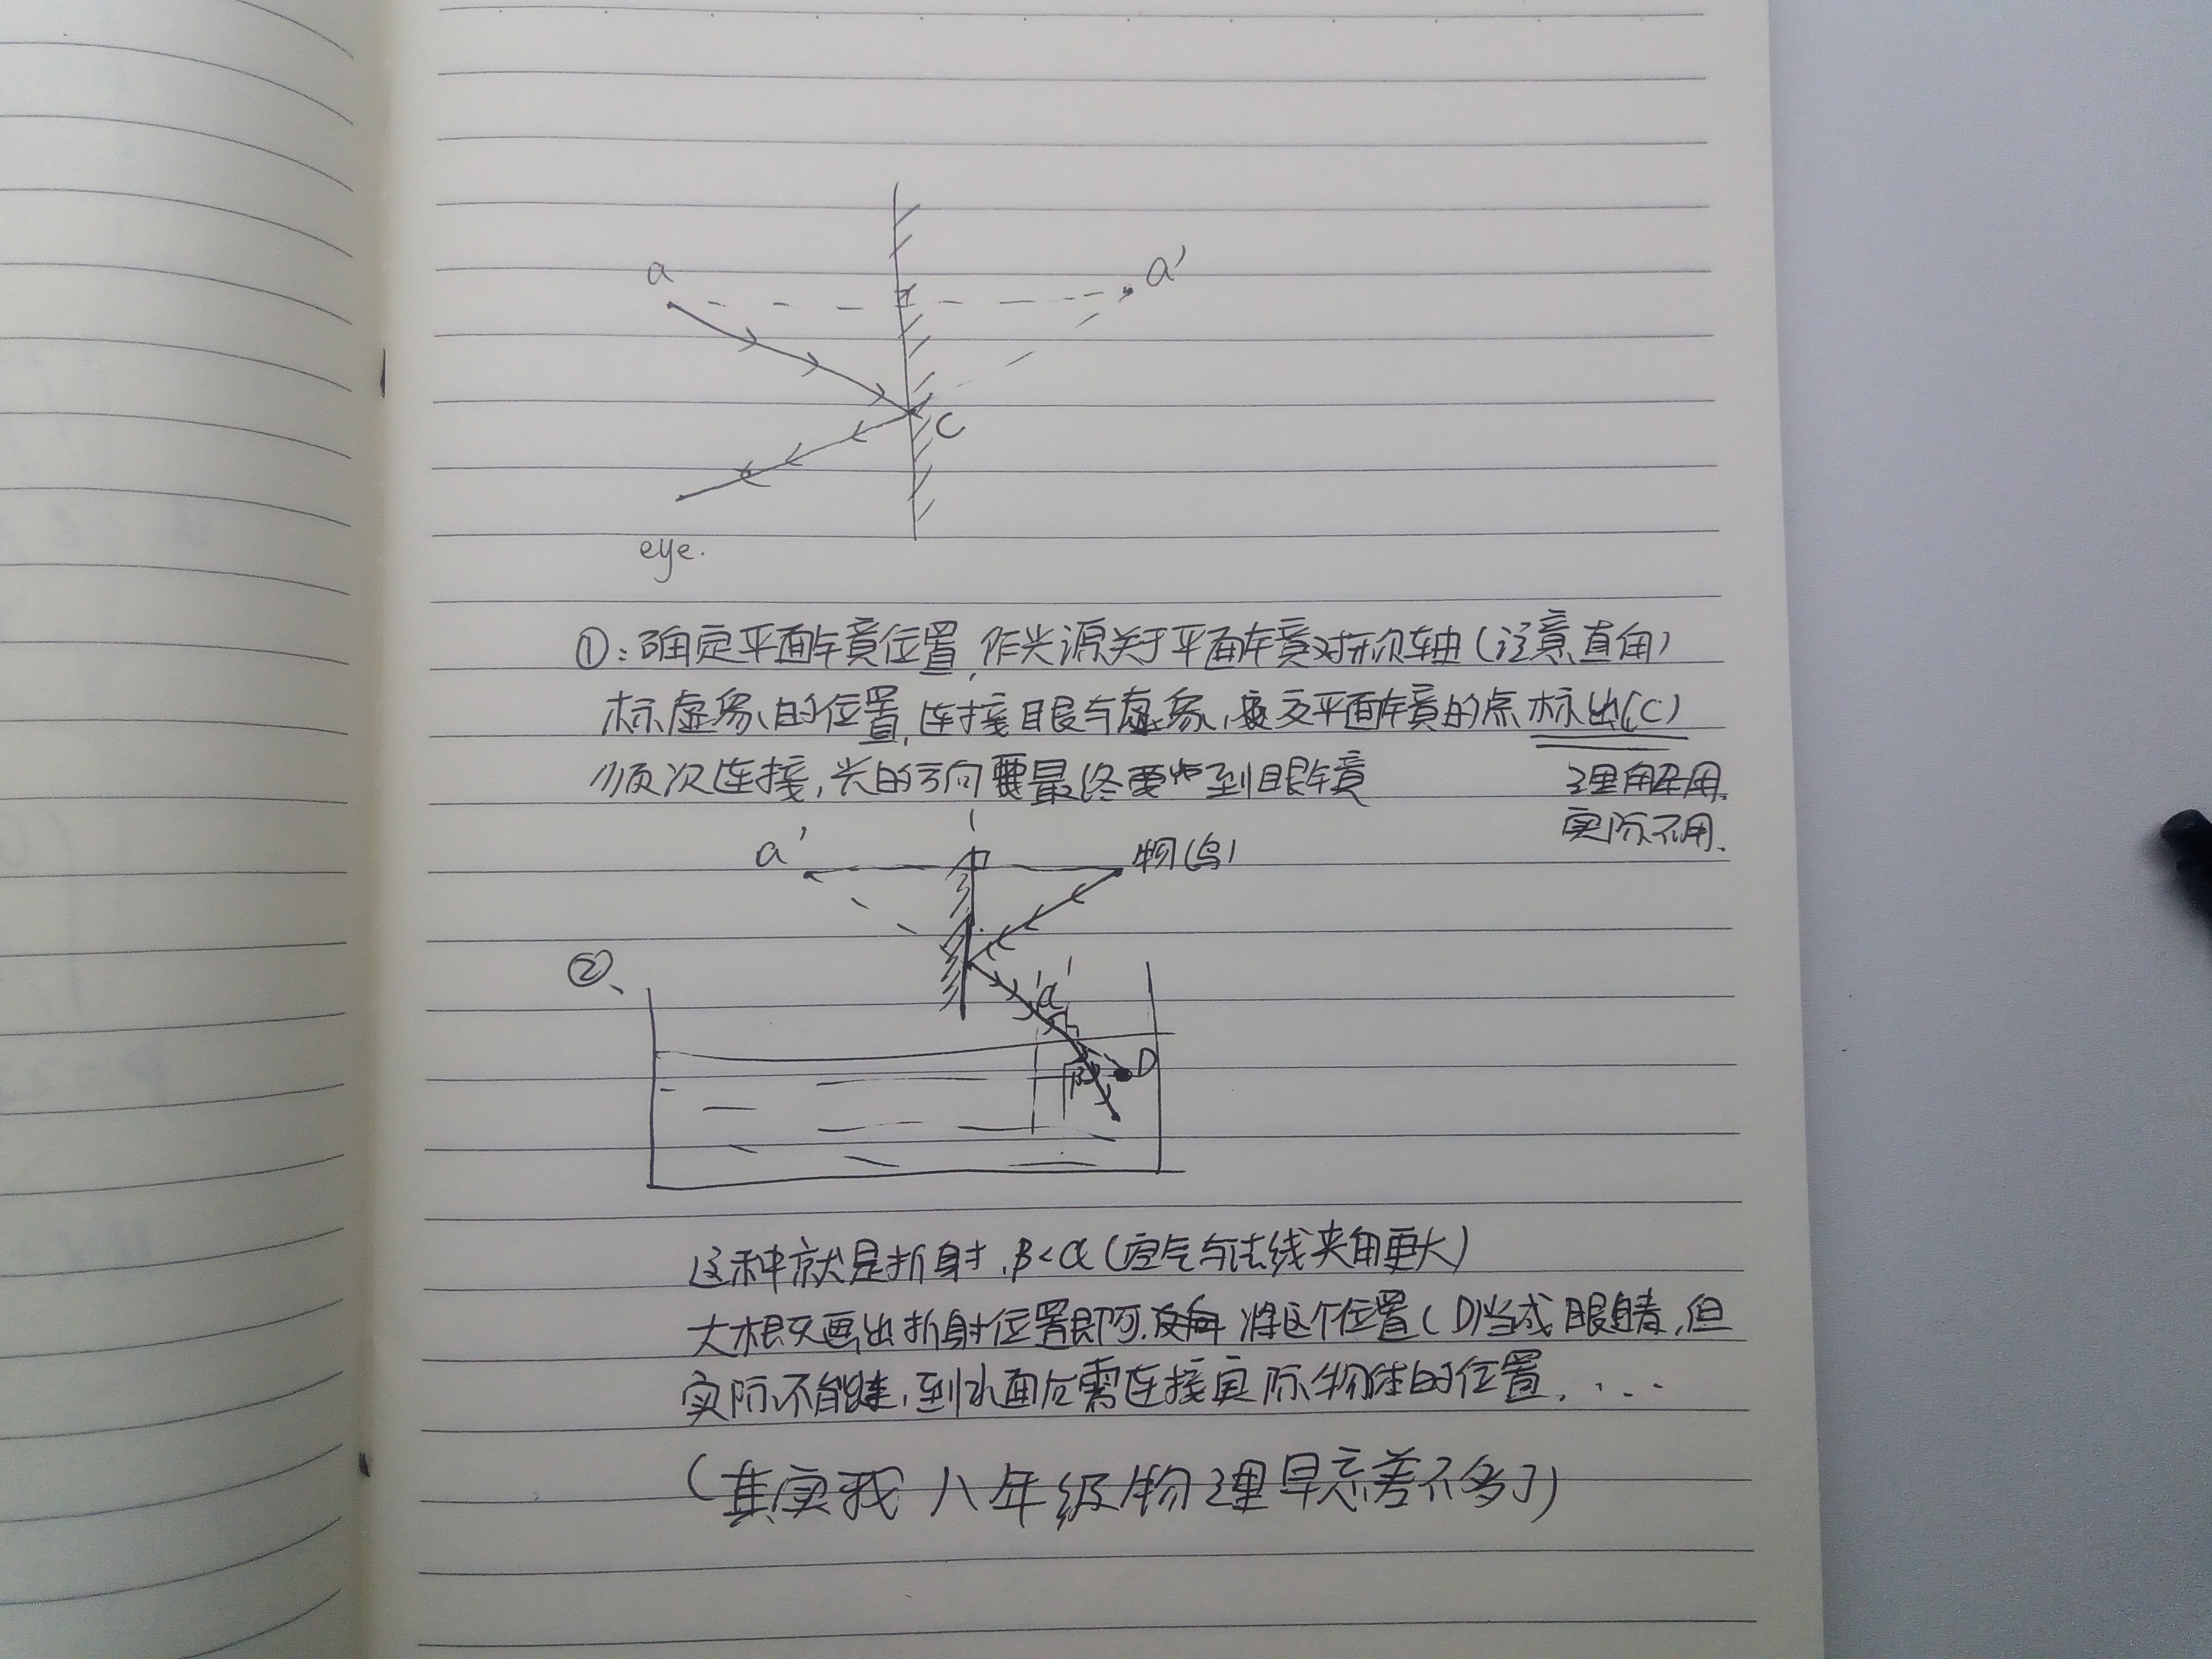 a
a'
C
eye.
①:确定平面车竟位置,作光源关于平面车竟对称车轴(注意直角)
标虚象的位置,连接眼与虚象,交平面车竟的点标出(C)
顺次连接,光的方向要最终要 到眼车竟
理解用.
实际不用.
a'
物(鸟)
②、
α
β
D
这种就是折射,β<α(空气与法线夹角更大)
大概又画出折射位置即可,将这个位置(D)当成眼睛,但
实际不能连,到水面后需连接实际物体的位置,....
(其实我八年级物理早忘差不多了)